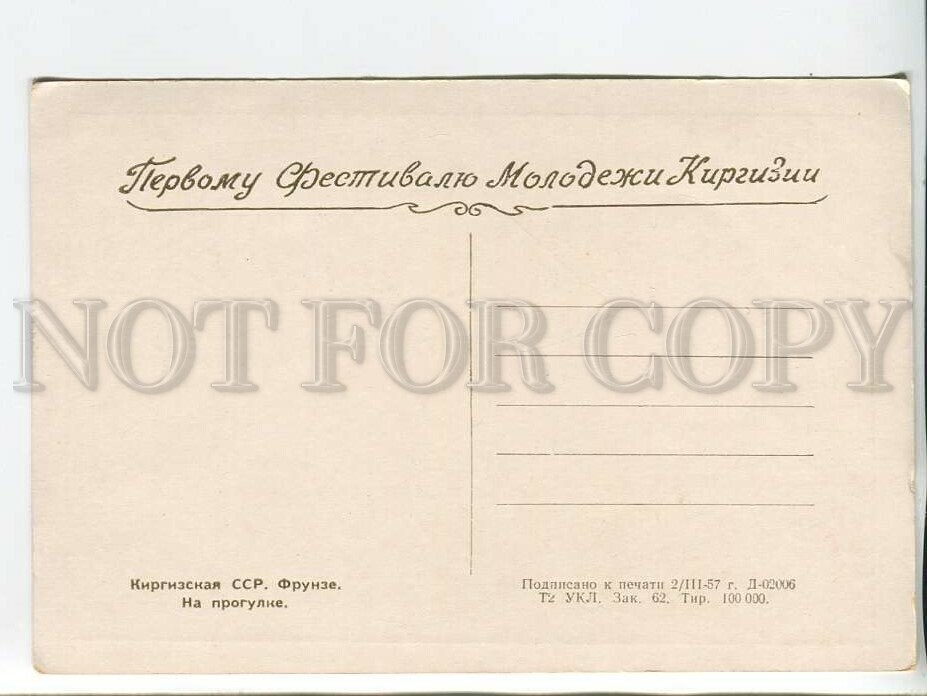 Первому Фестивалю Молодежи Киргизии
NOT FOR COPY
Киргизская ССР. Фрунзе.
На прогулке.
Подписано к печати 2/III-57 г. Д-02006
Т2 УКЛ. Зак. 62. Тир. 100 000.